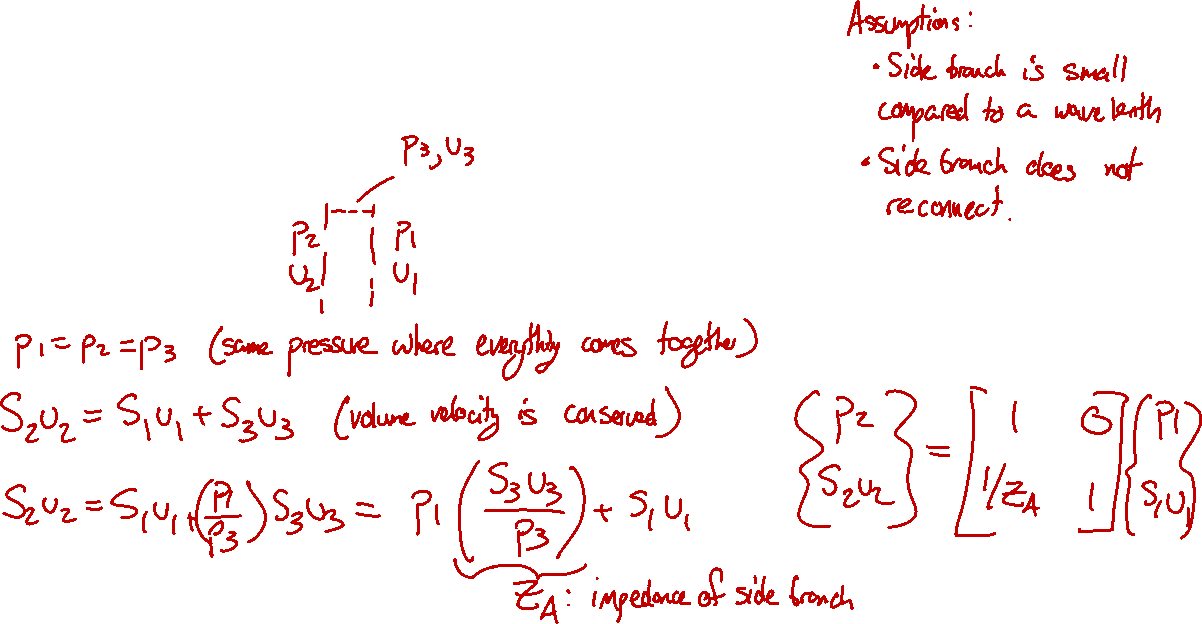 Assumptions:
• Side branch is small
compared to a wave lenth
• Side branch does not
reconnect.
P3, U3
P2 P1
U2 U1
P1 = P2 = P3 (same pressure where everything comes together)
S2U2 = S1U1 + S3U3 (volume velocity is conserved)
S2U2 = S1U1 + (P1/P3) S3U3 = P1 (S3U3/P3) + S1U1
ZA: impedance of side branch
{P2 S2U2} = [1 0 1/ZA 1] {P1 S1U1}